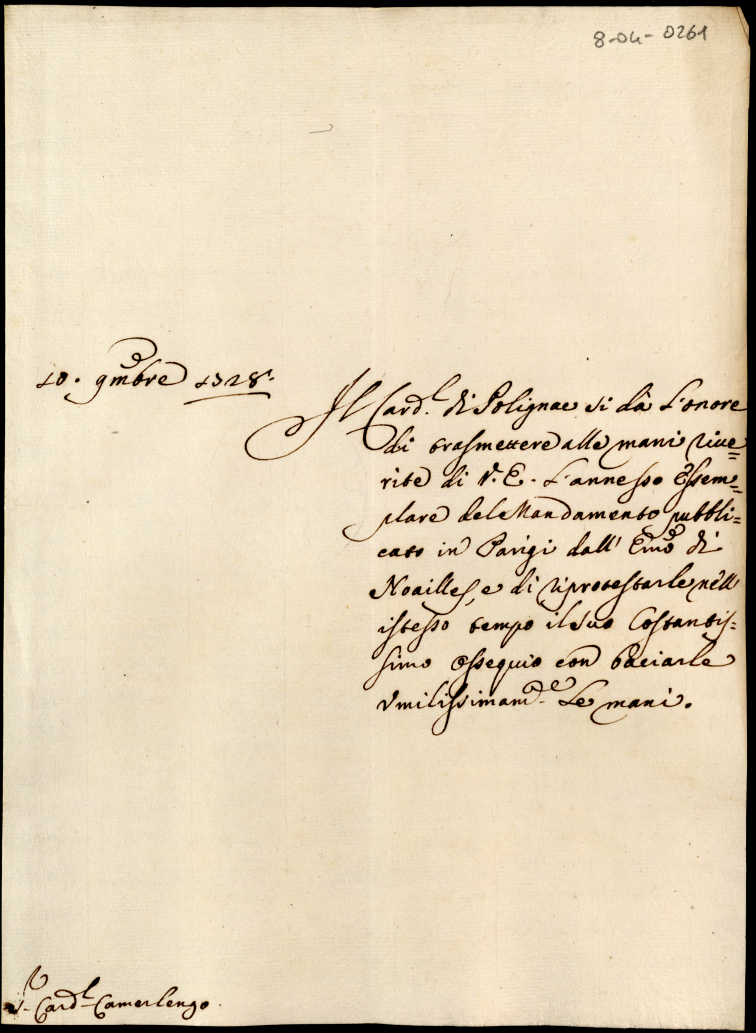 8-04-0261
10. 9mbre 1728.
Il Card.l di Polignac si dà l'onore
di trasmettere alle mani rive=
rite di V. E. l'annesso Essem=
plare del Mandamento pubbli=
cato in Parigi dall' Emo di
Noailles, e di riprotestarle nell'
istesso tempo il suo Costantis=
simo ossequio con baciarle
Umilissimam.te le mani.
S.r Card.l Camerlengo